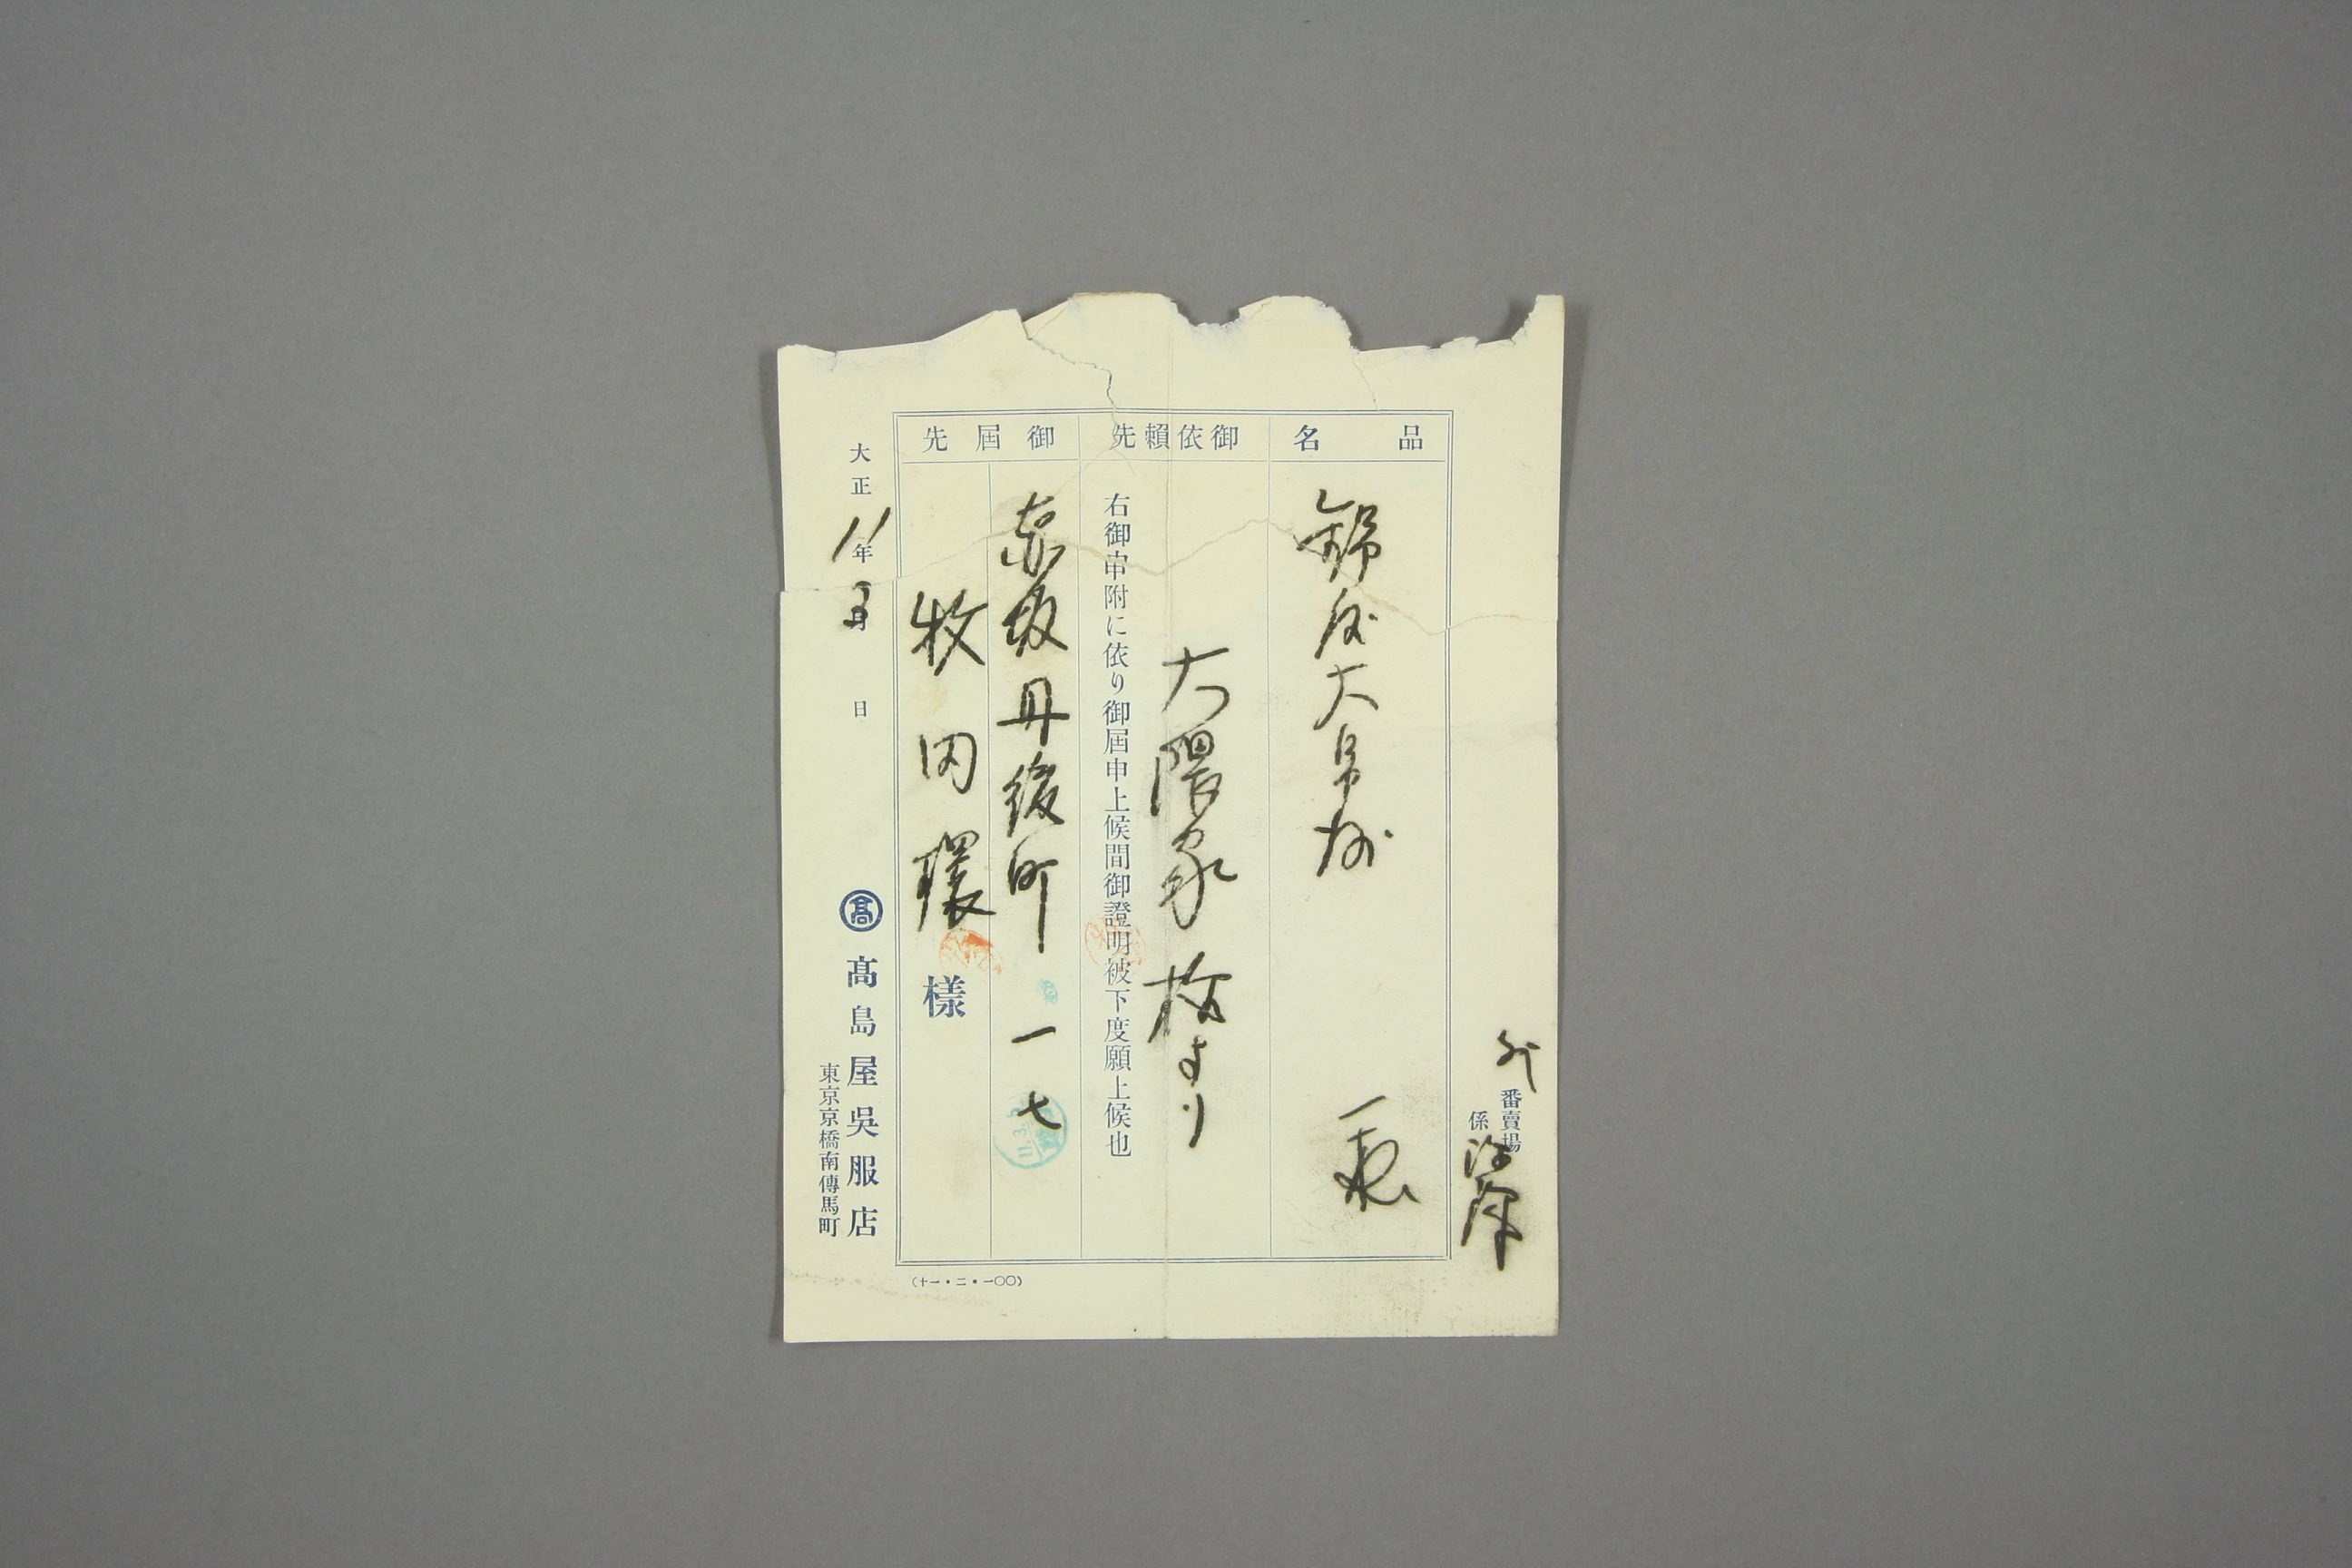 番賣場
係
品名
錦
大
一
御依賴先
大隈家
より
右御申附に依り御屆申上候間御證明被下度願上候也
御屆先
赤坂丹後町一七
牧田環樣
大正11年3月 日
髙 髙島屋吳服店
東京京橋南傳馬町
(十一・二・一〇〇)